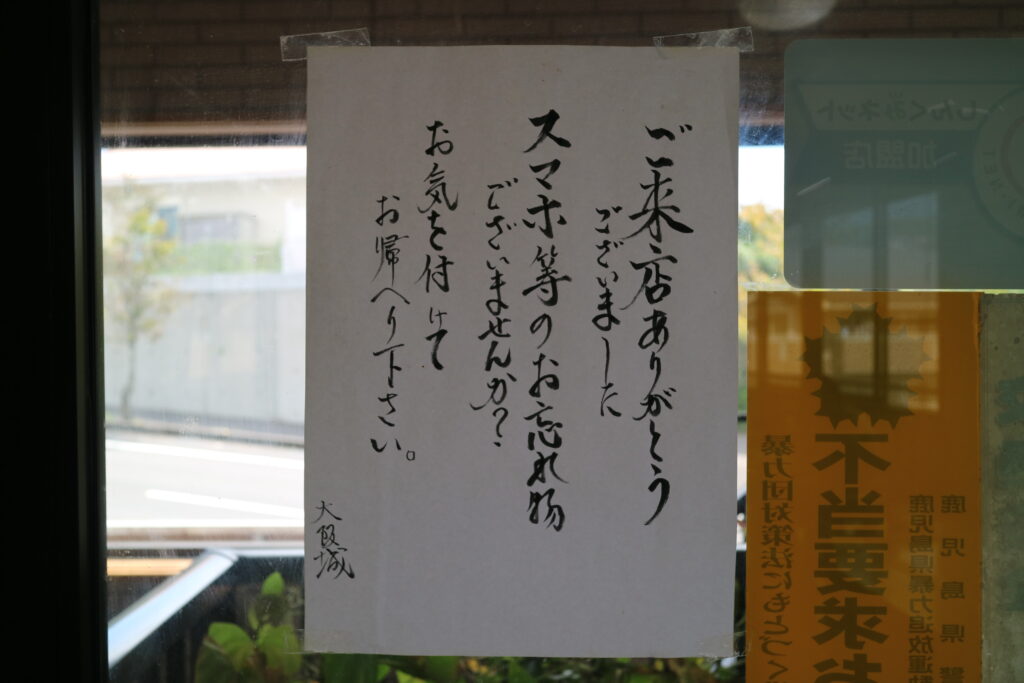 ご来店ありがとう
ございました
スマホ等のお忘れ物
ございませんか?
お気を付けて
お帰へり下さい。
大阪城
しんくみネット
加盟店
鹿児島県警
鹿児島県暴力追放運動
不当要求お
暴力団対策法にもとづく